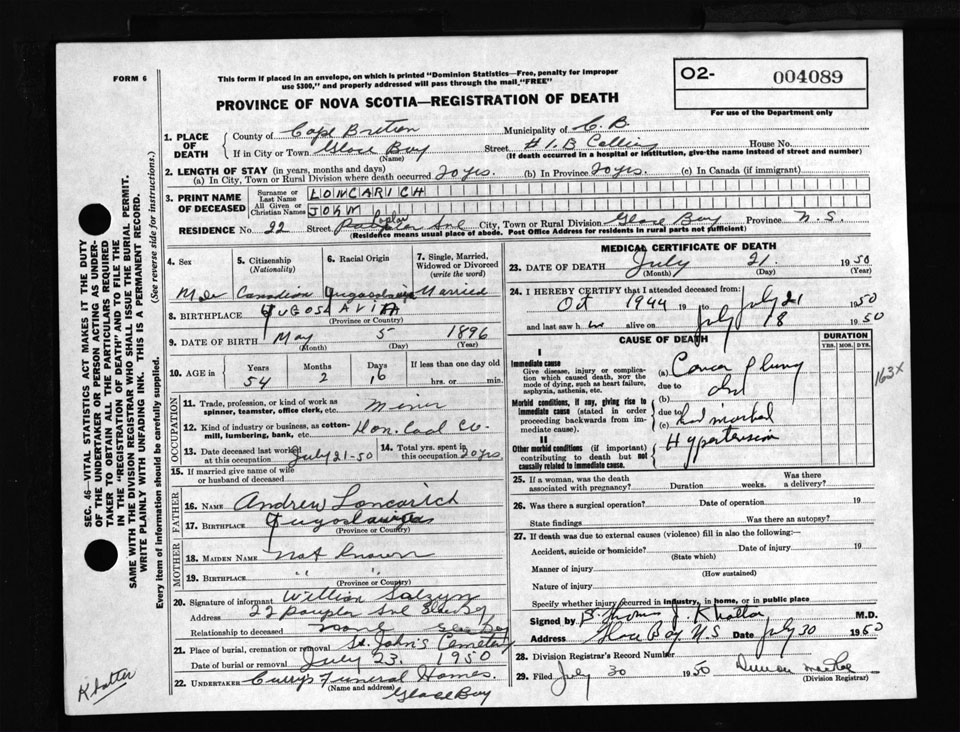 FORM 6
This form if placed in an envelope, on which is printed "Dominion Statistics—Free, penalty for improper
use $300," and properly addressed will pass through the mail "FREE"
O2- 004089
For use of the Department only
PROVINCE OF NOVA SCOTIA—REGISTRATION OF DEATH
1. PLACE OF DEATH
County of Cape Breton Municipality of C. B.
If in City or Town Glace Bay Street #1.B House No.
(Name) (If death occurred in a hospital or institution, give the name instead of street and number)
2. LENGTH OF STAY (in years, months and days)
(a) In City, Town or Rural Division where death occurred 20 yrs. (b) In Province 20 yrs. (c) In Canada (if immigrant)
3. PRINT NAME OF DECEASED
Surname or Last Name LONCARICH
All Given or Christian Names JOHN
RESIDENCE No. 22 Street City, Town or Rural Division Glace Bay Province N. S.
(Residence means usual place of abode. Post Office Address for residents in rural parts not sufficient)
4. Sex 5. Citizenship (Nationality) 6. Racial Origin 7. Single, Married, Widowed or Divorced (write the word)
Male Canadian Yugoslavia Married
8. BIRTHPLACE YUGOSLAVIA
(Province or Country)
9. DATE OF BIRTH May 5 1896
(Month) (Day) (Year)
10. AGE in Years Months Days If less than one day old
54 2 16 hrs. or min.
OCCUPATION
11. Trade, profession, or kind of work as spinner, teamster, office clerk, etc. Miner
12. Kind of industry or business, as cotton-mill, lumbering, bank, etc. Dom. Coal Co.
13. Date deceased last worked at this occupation July 21-50 14. Total yrs. spent in this occupation 20 yrs.
15. If married give name of wife or husband of deceased
FATHER
16. NAME Andrew Loncarich
17. BIRTHPLACE Yugoslavia
(Province or Country)
MOTHER
18. MAIDEN NAME Not Known
19. BIRTHPLACE " "
(Province or Country)
20. Signature of informant William
Address 22 Douglas Glace Bay
Relationship to deceased None Glace Bay
21. Place of burial, cremation or removal St. John's Cemetery
Date of burial or removal July 23. 1950
22. UNDERTAKER Curry's Funeral Homes.
(Name and address) Glace Bay
MEDICAL CERTIFICATE OF DEATH
23. DATE OF DEATH July 21. 1950
(Month) (Day) (Year)
24. I HEREBY CERTIFY that I attended deceased from:
Oct 1944 19 to July 21 1950
and last saw h im alive on July 18 1950
CAUSE OF DEATH
DURATION
YRS. MOS. DYS.
I
Immediate cause
Give disease, injury or complication which caused death, not the mode of dying, such as heart failure, asphyxia, asthenia, etc.
(a) Cancer of lung
due to
(b)
Morbid conditions, if any, giving rise to immediate cause (stated in order proceeding backwards from immediate cause).
due to
(c) marked
II
Other morbid conditions (if important) contributing to death but not causally related to immediate cause.
Hypertension
163x
25. If a woman, was the death associated with pregnancy? Duration weeks. Was there a delivery?
26. Was there a surgical operation? Date of operation 19
State findings Was there an autopsy?
27. If death was due to external causes (violence) fill in also the following:
Accident, suicide or homicide? Date of injury 19
(State which)
Manner of injury
(How sustained)
Nature of injury
Specify whether injury occurred in industry, in home, or in public place
Signed by Thomas J. Khattar M.D.
Address Glace Bay N.S Date July 30 1950
28. Division Registrar's Record Number
29. Filed July 30 1950 Duncan
(Division Registrar)
SEC. 46—VITAL STATISTICS ACT MAKES IT THE DUTY
OF THE UNDERTAKER OR PERSON ACTING AS UNDERTAKER TO OBTAIN ALL THE PARTICULARS REQUIRED
IN THE "REGISTRATION OF DEATH" AND TO FILE THE
SAME WITH THE DIVISION REGISTRAR WHO SHALL ISSUE THE BURIAL PERMIT.
WRITE PLAINLY WITH UNFADING INK. THIS IS A PERMANENT RECORD.
Every item of information should be carefully supplied. (See reverse side for instructions.)
Khattar